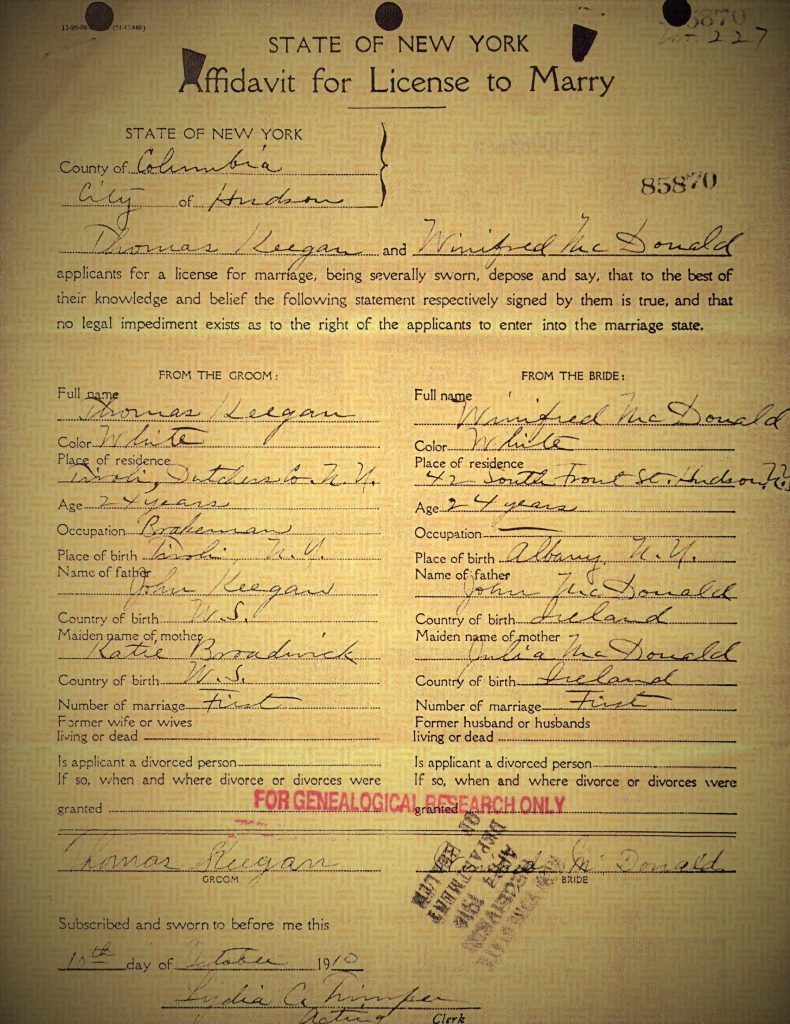 5870
227
STATE OF NEW YORK
Affidavit for License to Marry
STATE OF NEW YORK
County of Columbia
City of Hudson
85870
Thomas Keegan and Winifred McDonald
applicants for a license for marriage, being severally sworn, depose and say, that to the best of
their knowledge and belief the following statement respectively signed by them is true, and that
no legal impediment exists as to the right of the applicants to enter into the marriage state.
FROM THE GROOM:
Full name Thomas Keegan
Color White
Place of residence
Tivoli, Dutchess Co. N.Y.
Age 24 years
Occupation Brakeman
Place of birth Tivoli, N.Y.
Name of father
John Keegan
Country of birth U.S.
Maiden name of mother
Katie Broadwick
Country of birth U.S.
Number of marriage First
Former wife or wives
living or dead
Is applicant a divorced person
If so, when and where divorce or divorces were
granted
FROM THE BRIDE:
Full name
Winifred McDonald
Color White
Place of residence
42 South Front St. Hudson, N.Y.
Age 24 years
Occupation
Place of birth Albany, N.Y.
Name of father
John McDonald
Country of birth Ireland
Maiden name of mother
Julia McDonald
Country of birth Ireland
Number of marriage First
Former husband or husbands
living or dead
Is applicant a divorced person
If so, when and where divorce or divorces were
granted
FOR GENEALOGICAL RESEARCH ONLY
Thomas Keegan
GROOM
McDonald
BRIDE
RECEIVED
DEPARTMENT
OF HEALTH
Subscribed and sworn to before me this
10th day of October 1910
Lydia C. Trimper
Acting Clerk